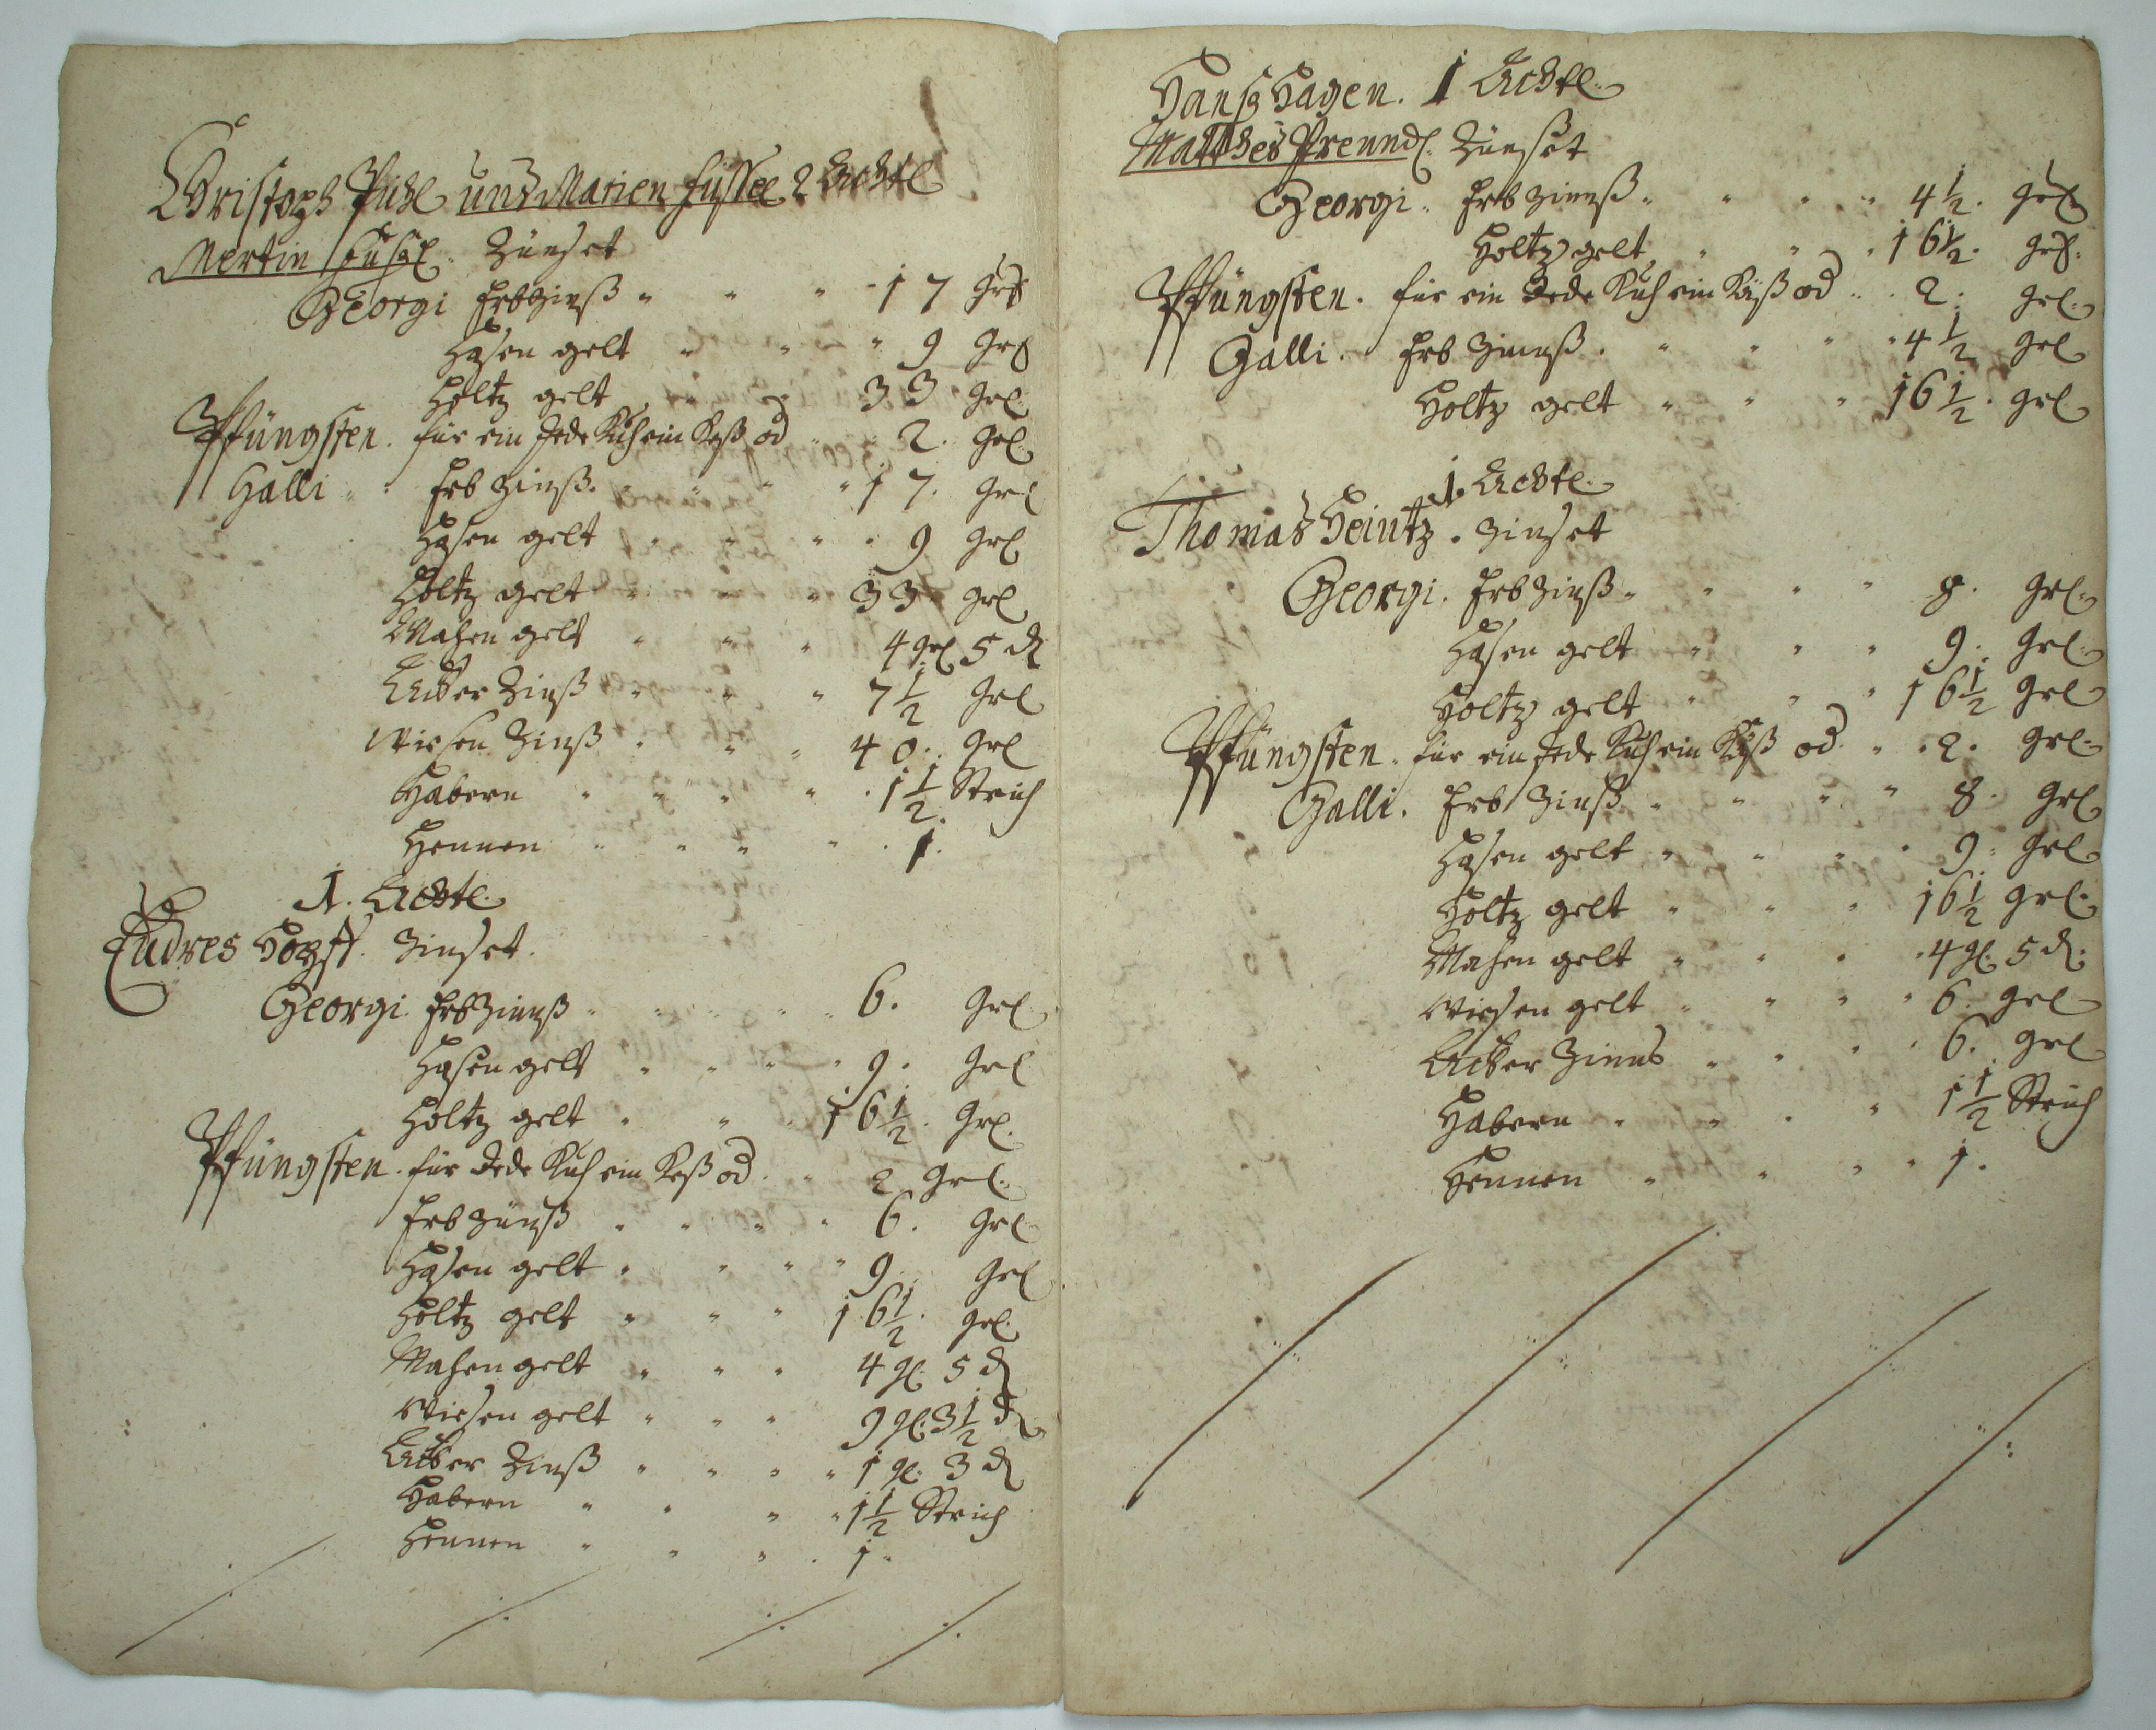 Christoph Pühl und Marien füssel 2 Achtl
Mertin Zünset
Georgi Erbzinß 17 grl
Hasen gelt 9 grl
Holtz gelt 33 grl
Pfüngsten. für ein Jede Kuh ein Keß od 2. grl.
Galli Erb Zinß. 17. grl
Hasen gelt 9 grl
Holtz gelt 33 grl
Mahen gelt 4 grl 5 d
Acker Zinß 7 1/2 grl
Wiesen Zinß 40. grl
Habern 1 1/2 Strich
Hennen 1.
1. Achtl.
Endres Zinset.
Georgi. Erbzinnß 6. grl.
Hasen gelt 9. grl
Holtz gelt 16 1/2. grl.
Pfüngsten. für Jede Kuh ein Keß od. 2 grl.
Erb Zünß 6. grl.
Hasen gelt 9. grl
Holtz gelt 16 1/2. grl.
Mahen gelt 4 gl. 5 d
Wiesen gelt 9 gl. 3 1/2 d
Acker Zinß 1 gl. 3 d
Habern 1 1/2 Strich
Hennen 1.
Hanß Hagen. 1 Achtl.
Matthes Preundl. Zünset
Georgi. Erb Zinnß. 4 1/2. grl
Holtz gelt 16 1/2. grl.
Pfüngsten. für ein Jede Kuh ein Käß od 2. grl.
Galli. Erb Zinnß. 4 1/2 grl
Holtz gelt 16 1/2. grl
1. Achtl.
Thomas Heintz. Zinset
Georgi. Erb Zinß. 8. grl.
Hasen gelt 9. grl.
Holtz gelt 16 1/2 grl
Pfüngsten. für ein Jede Kuh ein Käß od. 2. grl.
Galli. Erb Zinß. 8. grl
Hasen gelt 9. grl
Holtz gelt 16 1/2 grl.
Mahen gelt 4 gl. 5 d.
Wiesen gelt 6. grl
Acker Zinns 6. grl
Habern 1 1/2 Strich
Hennen 1.